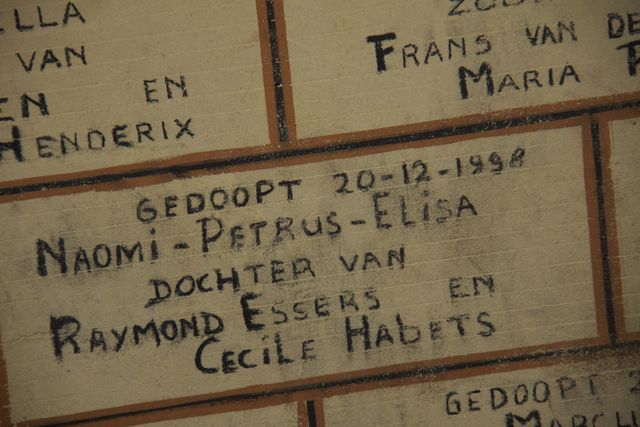 ELLA
VAN
EN EN
HENDERIX
FRANS VAN DE
MARIA
GEDOOPT 20-12-1998
NAOMi-PETRUS-ELiSA
DOCHTER VAN
RAYMOND ESSERS EN
CECiLE HAbETS
GEDOOPT 2
MARCH